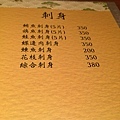 刺身
鮭魚刺身(5片) 350
旗魚刺身(5片) 350
鮪魚刺身(5片) 350
螺邊肉刺身 350
鰊魚刺身 350
花枝刺身 350
綜合刺身 380